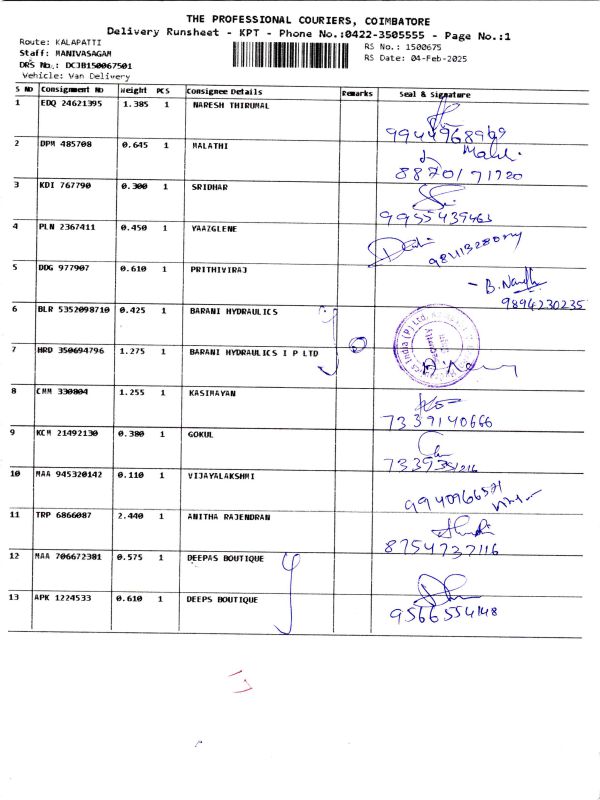 THE PROFESSIONAL COURIERS, COIMBATORE
Delivery Runsheet - KPT - Phone No.:0422-3505555 - Page No.:1
Route: KALAPATTI
RS No.: 1500675
Staff: MANIVASAGAM
RS Date: 04-Feb-2025
DRS No.: DCJB150067501
Vehicle: Van Delivery
S NO Consignment No Weight PCS Consignee Details Remarks Seal & Signature
1 EDQ 24621395 1.385 1 NARESH THIRUMAL
9944968969
2 DPM 485708 0.645 1 MALATHI
8870171720
3 KDI 767790 0.300 1 SRIDHAR
9955439463
4 PLN 2367411 0.450 1 YAAZGLENE
5 DDG 977907 0.610 1 PRITHIVIRAJ
9894230235
6 BLR 5352098710 0.425 1 BARANI HYDRAULICS
7 HRD 350694796 1.275 1 BARANI HYDRAULICS I P LTD
8 CMM 330804 1.255 1 KASIMAYAN
7339140666
9 KCM 21492130 0.380 1 GOKUL
10 MAA 945320142 0.110 1 VIJAYALAKSHMI
9940966571
11 TRP 6866087 2.440 1 ANITHA RAJENDRAN
8754737116
12 MAA 706672381 0.575 1 DEEPAS BOUTIQUE
13 APK 1224533 0.610 1 DEEPS BOUTIQUE
9566554148